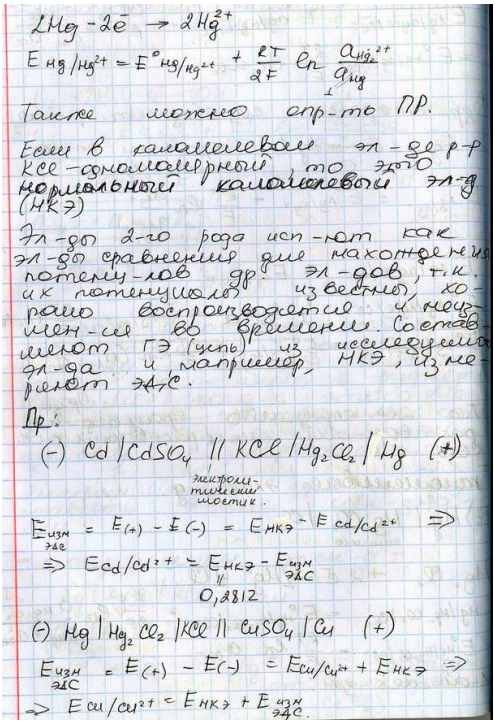 2Hg - 2ē → 2Hg²⁺
E Hg/Hg²⁺ = E° Hg/Hg²⁺ + RT/2F ln aHg₂²⁺/aHg
1
Также можно опр-ть ПР.
Если в каломелевом эл-де р-р
KCl-одномолярный, то это
нормальный каломелевый эл-д
(НКЭ)
Эл-ды 2-го рода исп-ют как
эл-ды сравнения для нахождения
потенц-лов др. эл-дов, т.к.
их потенциалы известны, хо-
рошо воспроизводятся и неиз-
мен-ся во времени. Состав-
ляют ГЭ (цепь) из исследуемого
эл-да и, например, НКЭ, изме-
ряют ЭДС.
Пр:
(-) Cd/CdSO₄ // KCl/Hg₂Cl₂/Hg (+)
электроли-
тический
мостик.
Eизм ЭДС = E(+) - E(-) = EНКЭ - E Cd/Cd²⁺ ⇒
⇒ E Cd/Cd²⁺ = EНКЭ - Eизм ЭДС
||
0,2812
(-) Hg/Hg₂Cl₂/KCl // CuSO₄/Cu (+)
Eизм ЭДС = E(+) - E(-) = E Cu/Cu²⁺ + EНКЭ ⇒
⇒ E Cu/Cu²⁺ = EНКЭ + Eизм ЭДС.